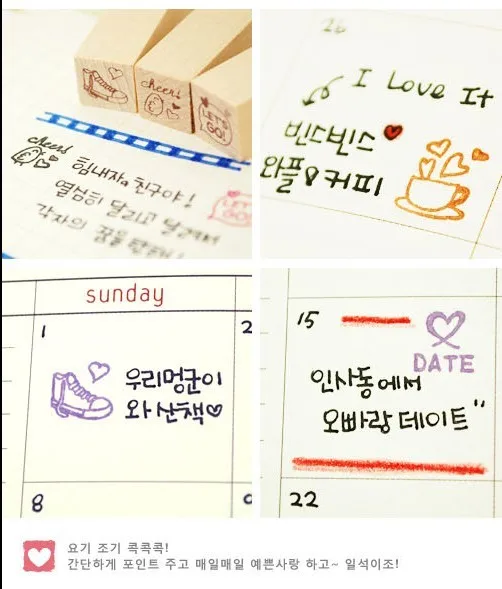 cheers
LET'S GO!
cheers
힘내자 친구야!
열심히 달리고 달려서
각자의 꿈을
LET'S GO!
26
I Love It
빈스빈스
와플 & 커피
sunday
1
2
우리멍군이
와 산책
8
15
DATE
인사동에서
오빠랑 데이트"
22
요기 조기 콕콕콕!
간단하게 포인트 주고 매일매일 예쁜사랑 하고~ 일석이조!